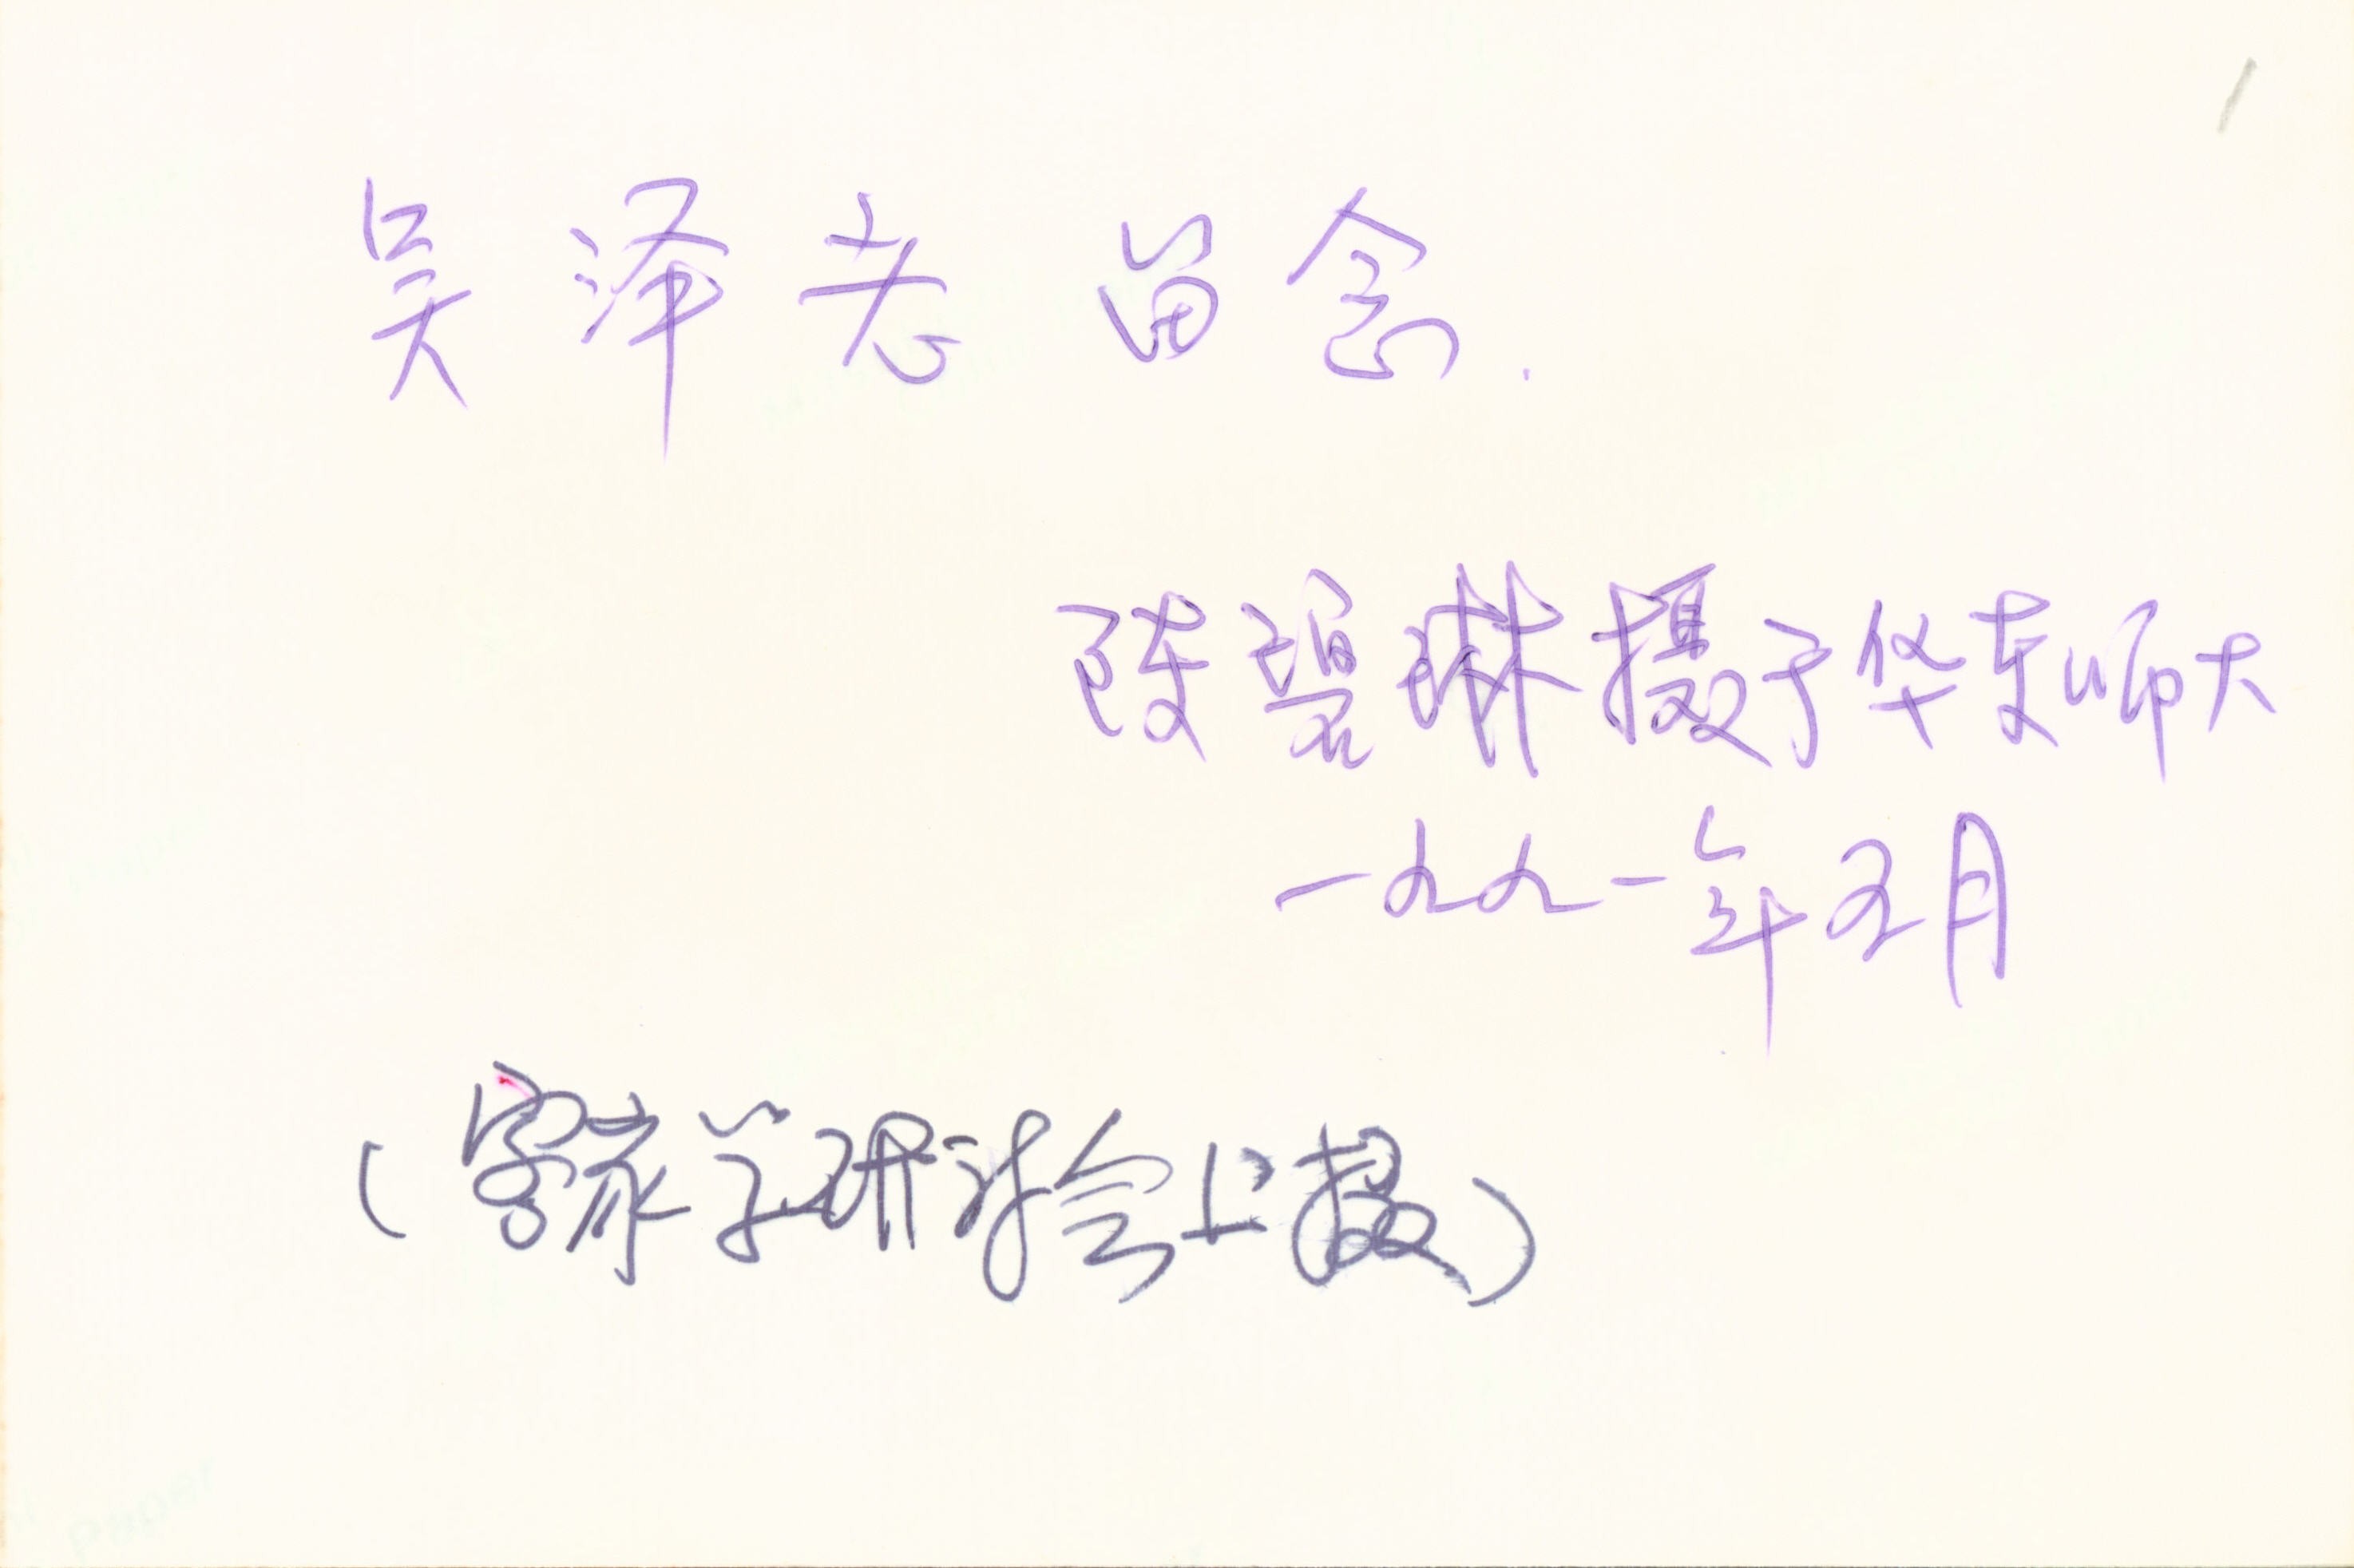 吴泽老 留念.
陈碧琳摄于华东师大
一九九一年五月
(客家学研讨会上摄)